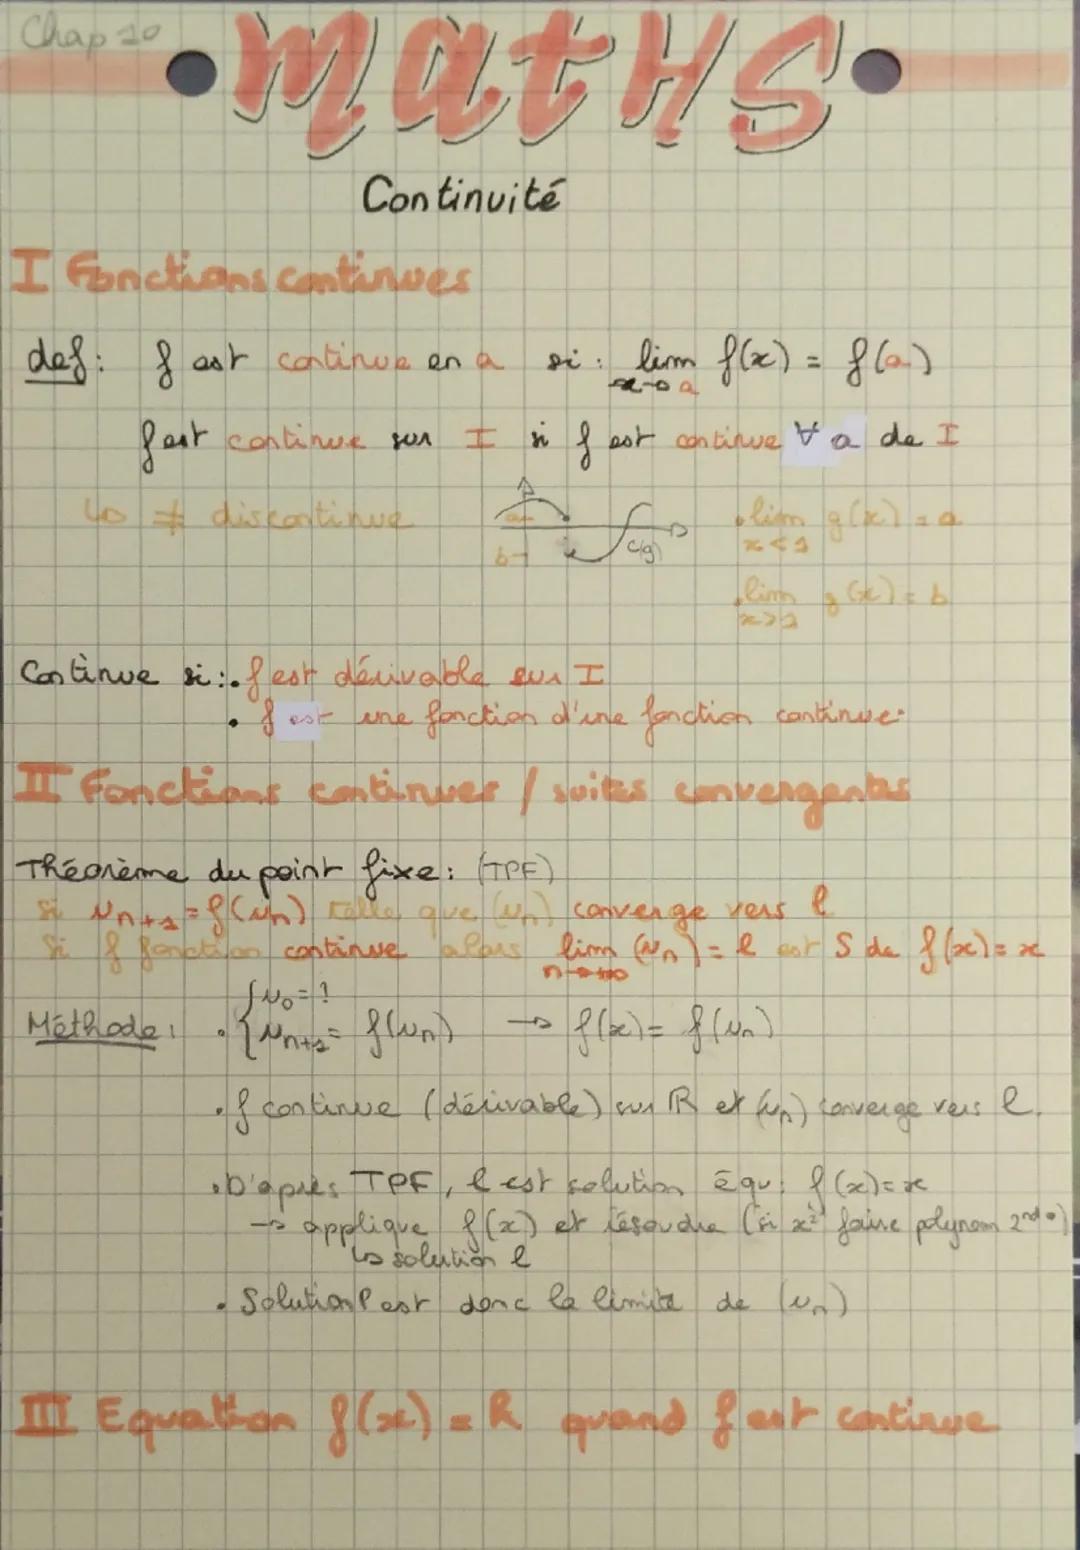 Chap 10
MatHS
Continuité
I Fonctions continues
def: f est continue en a si : lim f(x) = f(a)
x→a
f est continue sur I si f est continue ∀ a de I
↳ ≠ discontinue
a
b
C(g)
• lim g(x) = a
x<1
• lim g(x) = b
x>1
Continue si : • f est dérivable sur I
• f est une fonction d'une fonction continue.
II Fonctions continues / suites convergentes
Théorème du point fixe : (TPF)
Si un+1 = f(un) telle que (un) converge vers l
Si f fonction continue alors lim (un) = l est S de f(x) = x
n→+∞
Méthode : • { u0 = ?
un+1 = f(un) → f(x) = f(un)
• f continue (dérivable) sur ℝ et (un) converge vers l.
• D'après TPF, l est solution équ : f(x) = x
→ applique f(x) et résoudre (si x² faire polynom 2nd °)
↳ solution l
• Solution l est donc la limite de (un)
III Equation f(x) = k quand f est continue